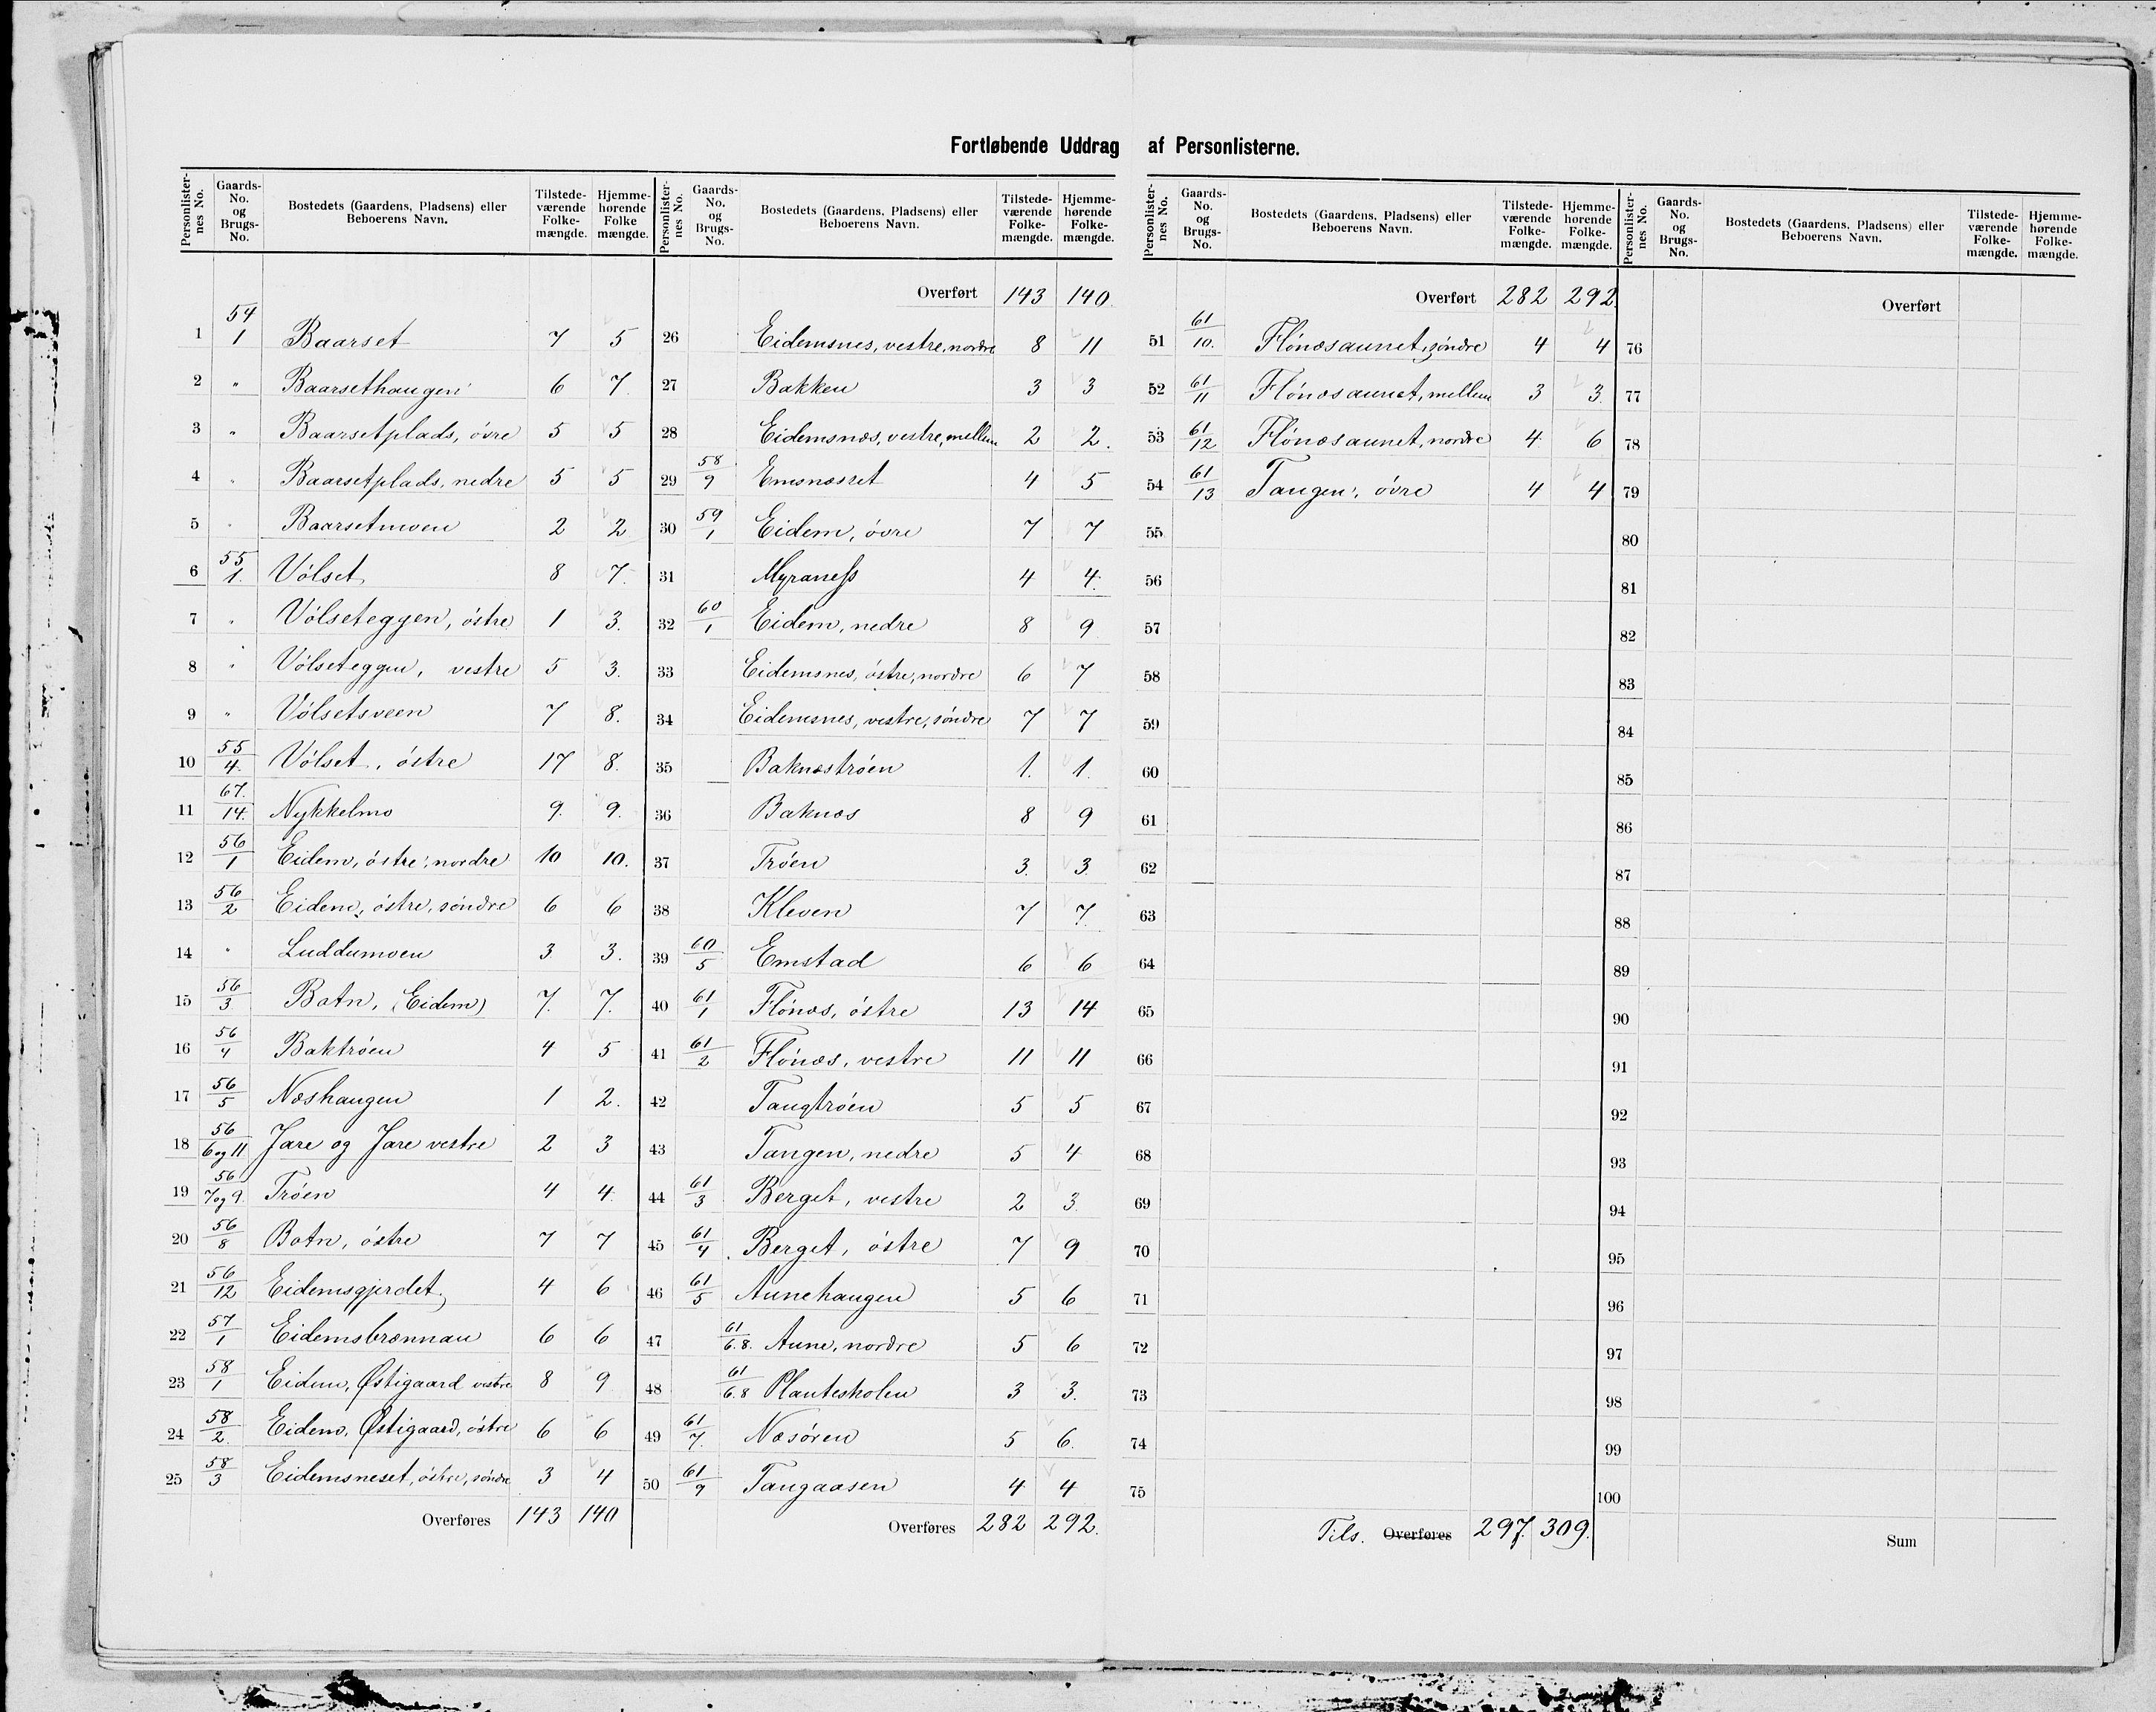 Fortløbende Uddrag af Personlisterne.
Personlister-nes No. | Gaards-No. og Brugs-No. | Bostedets (Gaardens, Pladsens) eller Beboerens Navn. | Tilstede-værende Folke-mængde. | Hjemme-hørende Folke mængde.
1 | 54/1 | Baarset | 7 | 5
2 | " | Baarsethaugen | 6 | 7
3 | " | Baarsetplads, övre | 5 | 5
4 | " | Baarsetplads, nedre | 5 | 5
5 | " | Baarsetmoen | 2 | 2
6 | 55/1. | Völset | 8 | 7.
7 | " | Völseteggen, östre | 1 | 3.
8 | " | Völseteggen, vestre | 5 | 3.
9 | " | Völsetsveen | 7 | 8.
10 | 55/4. | Völset, östre | 17 | 8.
11 | 67./14. | Nykkelmo | 9. | 9.
12 | 56/1 | Eidem, östre, nordre | 10 | 10.
13 | 56/2 | Eidem, östre, söndre | 6 | 6
14 | " | Luddumoen | 3 | 3.
15 | 56/3 | Botn, (Eidem) | 7. | 7.
16 | 56/4 | Baktröen | 4 | 5
17 | 56/5 | Næshaugen | 1 | 2.
18 | 56/6 og 11 | Jare og Jare vestre | 2 | 3
19 | 56/7 og 9. | Tröen | 4 | 4.
20 | 56/8 | Botn, östre | 7 | 7
21 | 56/12 | Eidemsgjerdet | 4 | 6
22 | 57/1 | Eidemsbrænnan | 6 | 6
23 | 58/1 | Eidem, Østigaard vestre | 8 | 9
24 | 58/2. | Eidem, Østigaard, östre | 6 | 6
25 | 58/3 | Eidemsneset, östre, söndre | 3 | 4
Overføres | 143 | 140
Personlister-nes No. | Gaards-No. og Brugs-No. | Bostedets (Gaardens, Pladsens) eller Beboerens Navn. | Tilstede-værende Folke-mængde. | Hjemme-hørende Folke-mængde.
Overført | 143 | 140.
26 | Eidemsnes, vestre, nordre | 8 | 11
27 | Bakken | 3 | 3
28 | Eidemsnæs, vestre, mellem | 2 | 2.
29 | 58/9 | Emsnæsset | 4 | 5
30 | 59/1 | Eidem, övre | 7 | 7
31 | Myraness | 4 | 4.
32 | 60/1 | Eidem, nedre | 8 | 9
33 | Eidemsnes, östre, nordre | 6 | 7
34 | Eidemsnes, vestre, söndre | 7 | 7
35 | Baknæströen | 1. | 1.
36 | Baknæs | 8 | 9
37 | Tröen | 3. | 3.
38 | Kleven | 7 | 7.
39 | 60/5 | Emstad | 6 | 6
40 | 61/1 | Flönæs, östre | 13 | 14
41 | 61/2 | Flönæs, vestre | 11 | 11
42 | Tangtröen | 5 | 5
43 | Tangen, nedre | 5 | 4
44 | 61/3 | Berget, vestre | 2 | 3.
45 | 61/4 | Berget, östre | 7 | 9
46 | 61/5 | Aunehaugen | 5 | 6
47 | 61/6.8. | Aune, nordre | 5 | 6
48 | 61/6.8 | Planteskolen | 3 | 3.
49 | 61/7. | Næsören | 5 | 6.
50 | 61/9 | Tangaasen | 4 | 4
Overføres | 282 | 292.
Personlister-nes No. | Gaards-No. og Brugs-No. | Bostedets (Gaardens, Pladsens) eller Beboerens Navn. | Tilstede-værende Folke-mængde. | Hjemme-hørende Folke-mængde.
Overført | 282 | 292.
51 | 61/10. | Flönæsaunet, söndre | 4 | 4
52 | 61/11 | Flönæsaunet, mellem | 3 | 3.
53 | 61/12 | Flönæsaunet, nordre | 4. | 6
54 | 61/13 | Tangen, övre | 4 | 4
55
56
57
58
59
60
61
62
63
64
65
66
67
68
69
70
71
72
73
74
75
Tils. Overføres | 297. | 309.
Personlister-nes No. | Gaards-No. og Brugs-No. | Bostedets (Gaardens, Pladsens) eller Beboerens Navn. | Tilstede-værende Folke-mængde. | Hjemme-hørende Folke-mængde.
Overført
76
77
78
79
80
81
82
83
84
85
86
87
88
89
90
91
92
93
94
95
96
97
98
99
100
Sum